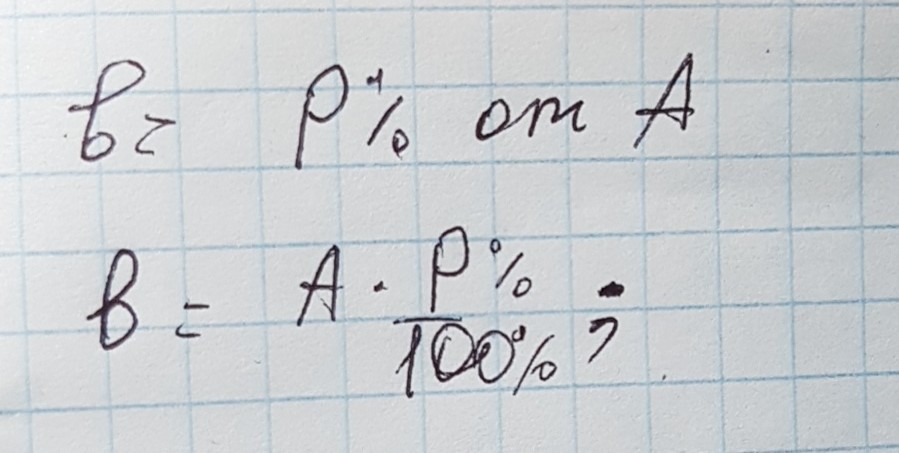 B = P% от A
B = A · P% / 100% ;